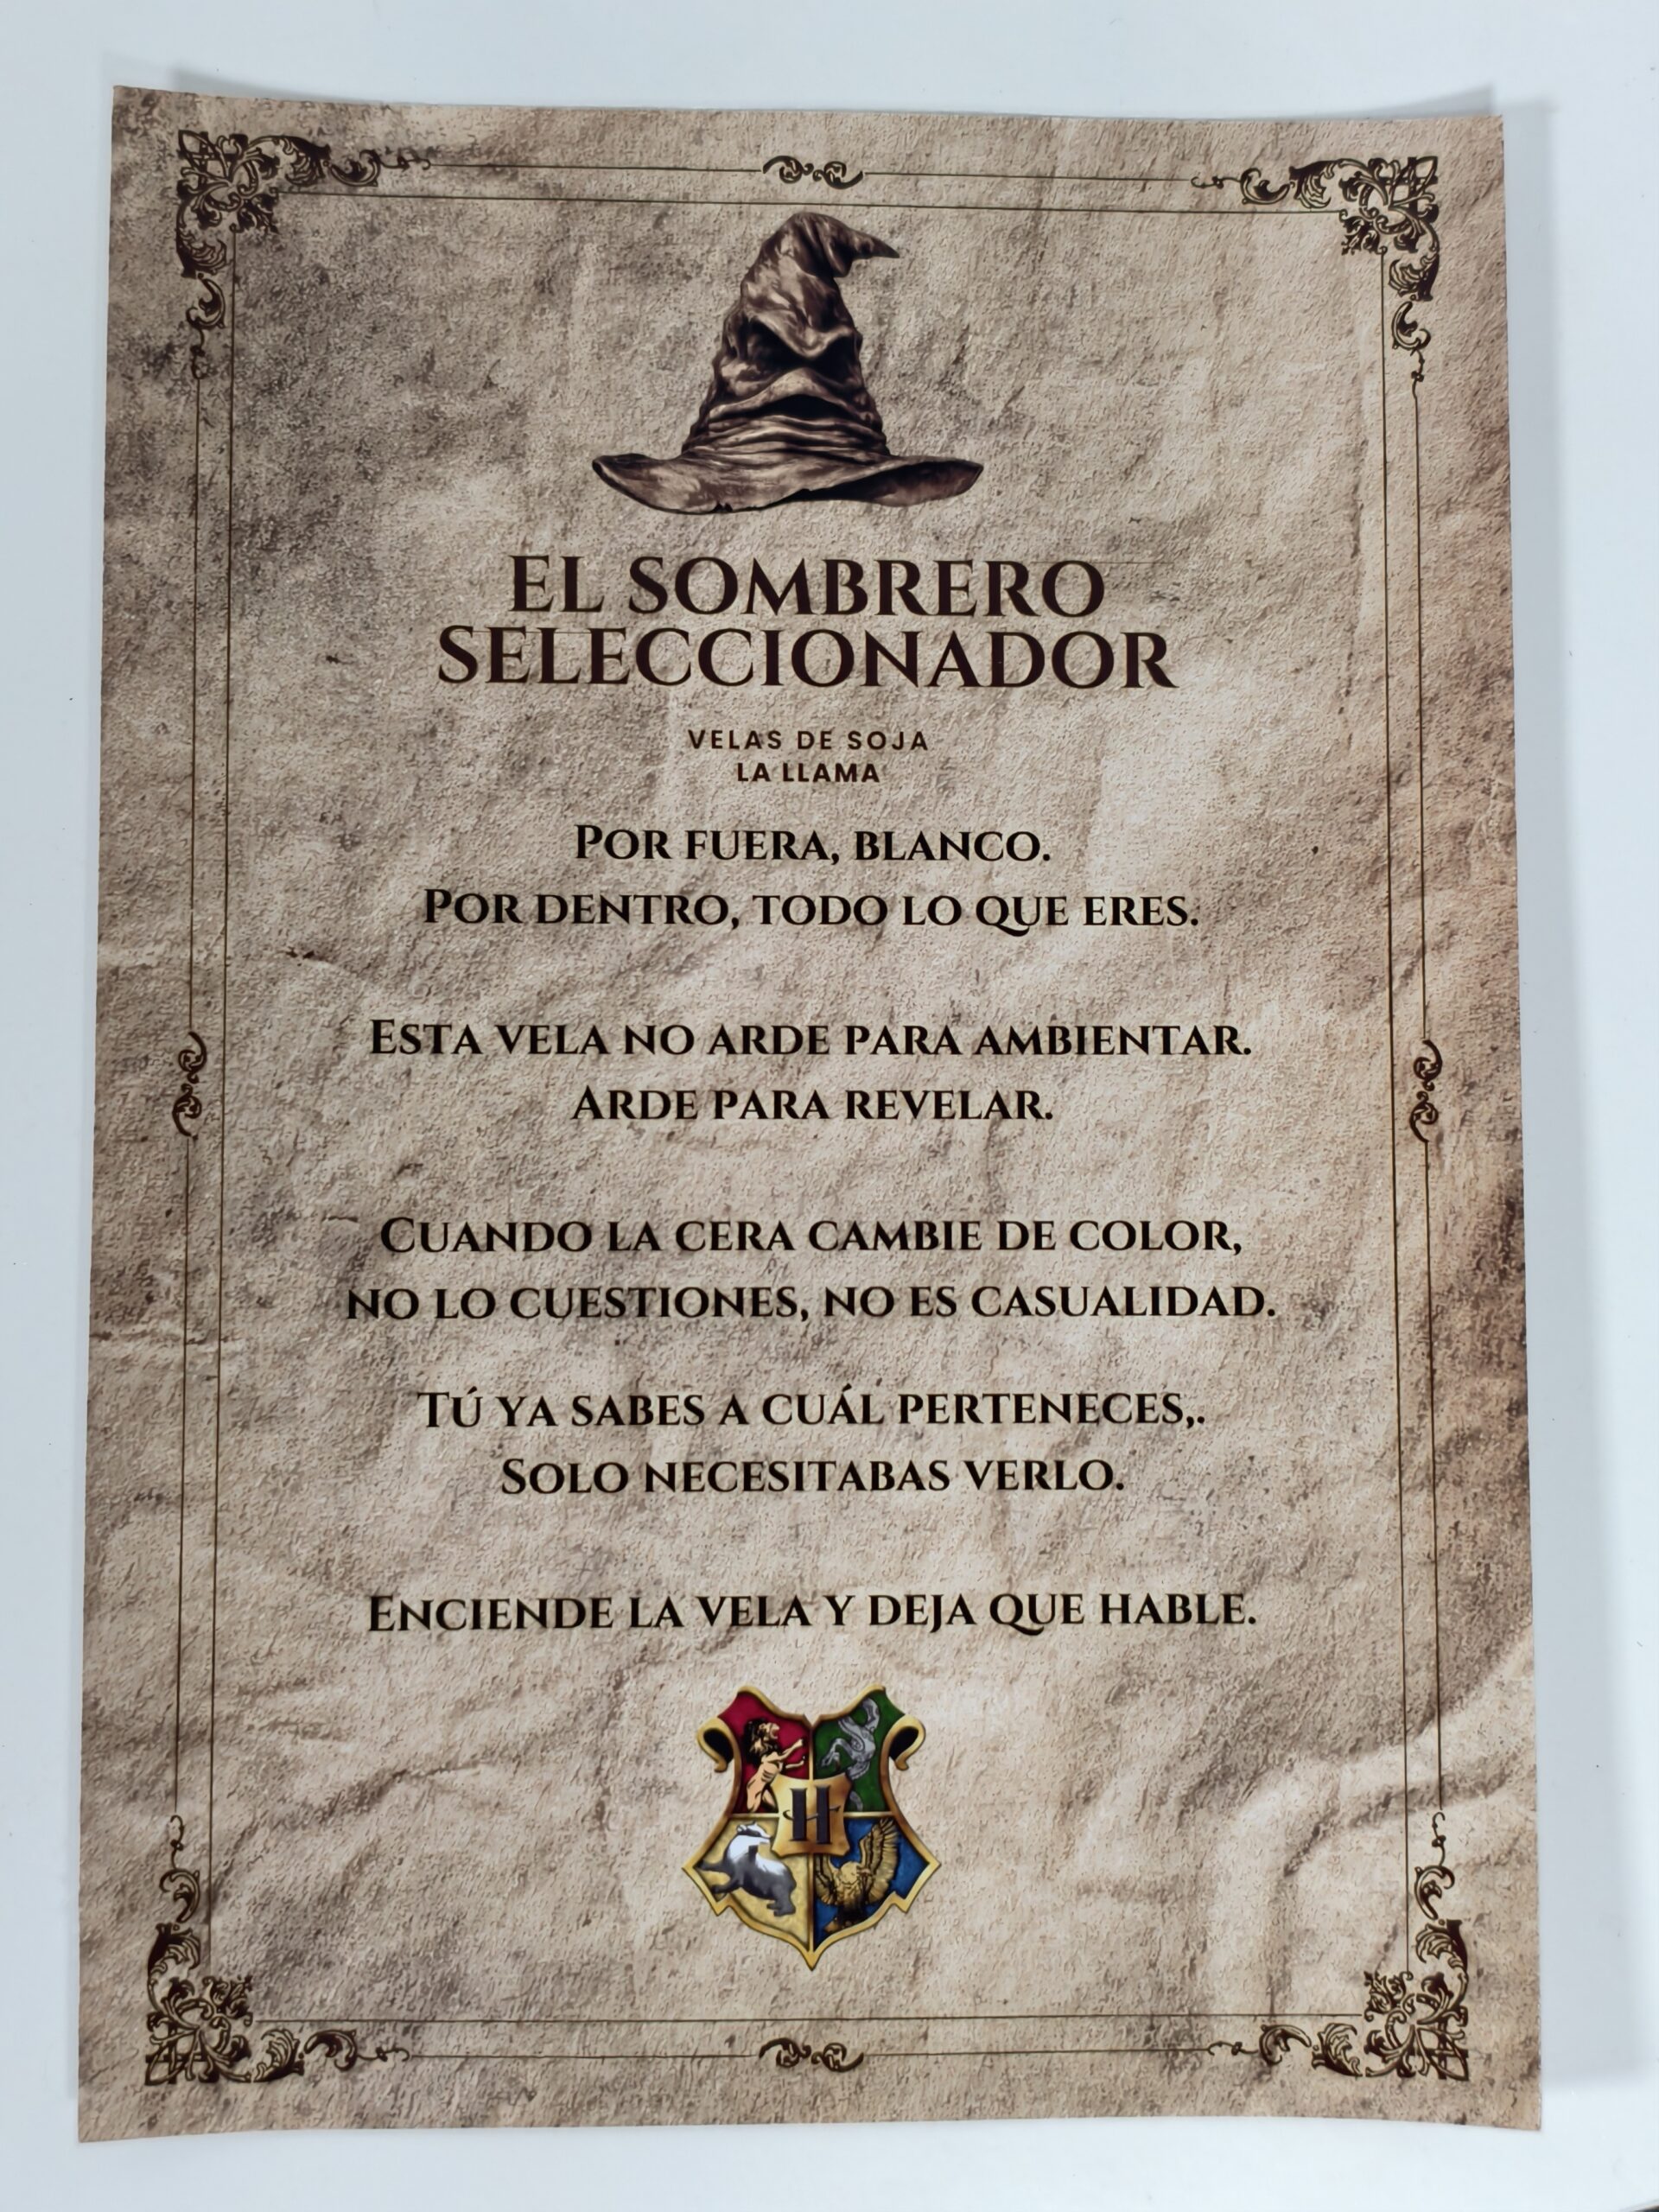 EL SOMBRERO
SELECCIONADOR
VELAS DE SOJA
LA LLAMA
POR FUERA, BLANCO.
POR DENTRO, TODO LO QUE ERES.
ESTA VELA NO ARDE PARA AMBIENTAR.
ARDE PARA REVELAR.
CUANDO LA CERA CAMBIE DE COLOR,
NO LO CUESTIONES, NO ES CASUALIDAD.
TÚ YA SABES A CUÁL PERTENECES,.
SOLO NECESITABAS VERLO.
ENCIENDE LA VELA Y DEJA QUE HABLE.
H